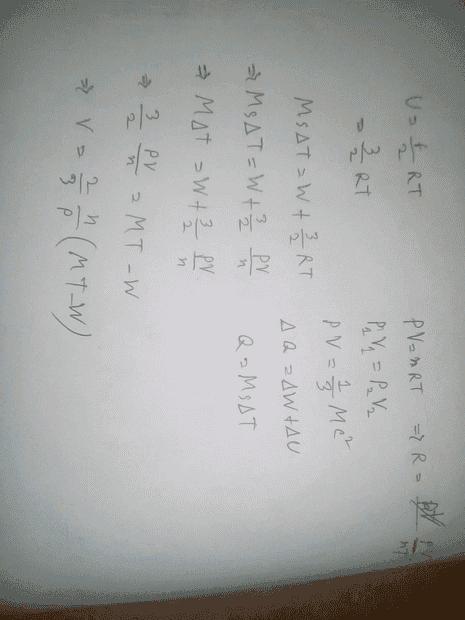 U = f/2 RT
= 3/2 RT
MsΔT = W + 3/2 RT
⇒ MsΔT = W + 3/2 PV/n
⇒ MΔT = W + 3/2 PV/n
⇒ 3/2 PV/n = MT - W
⇒ V = 2/3 n/P (MT - W)
PV = nRT ⇒ R = PV/nT
P₁V₁ = P₂V₂
PV = 1/3 Mc²
ΔQ = ΔW + ΔU
Q = MsΔT